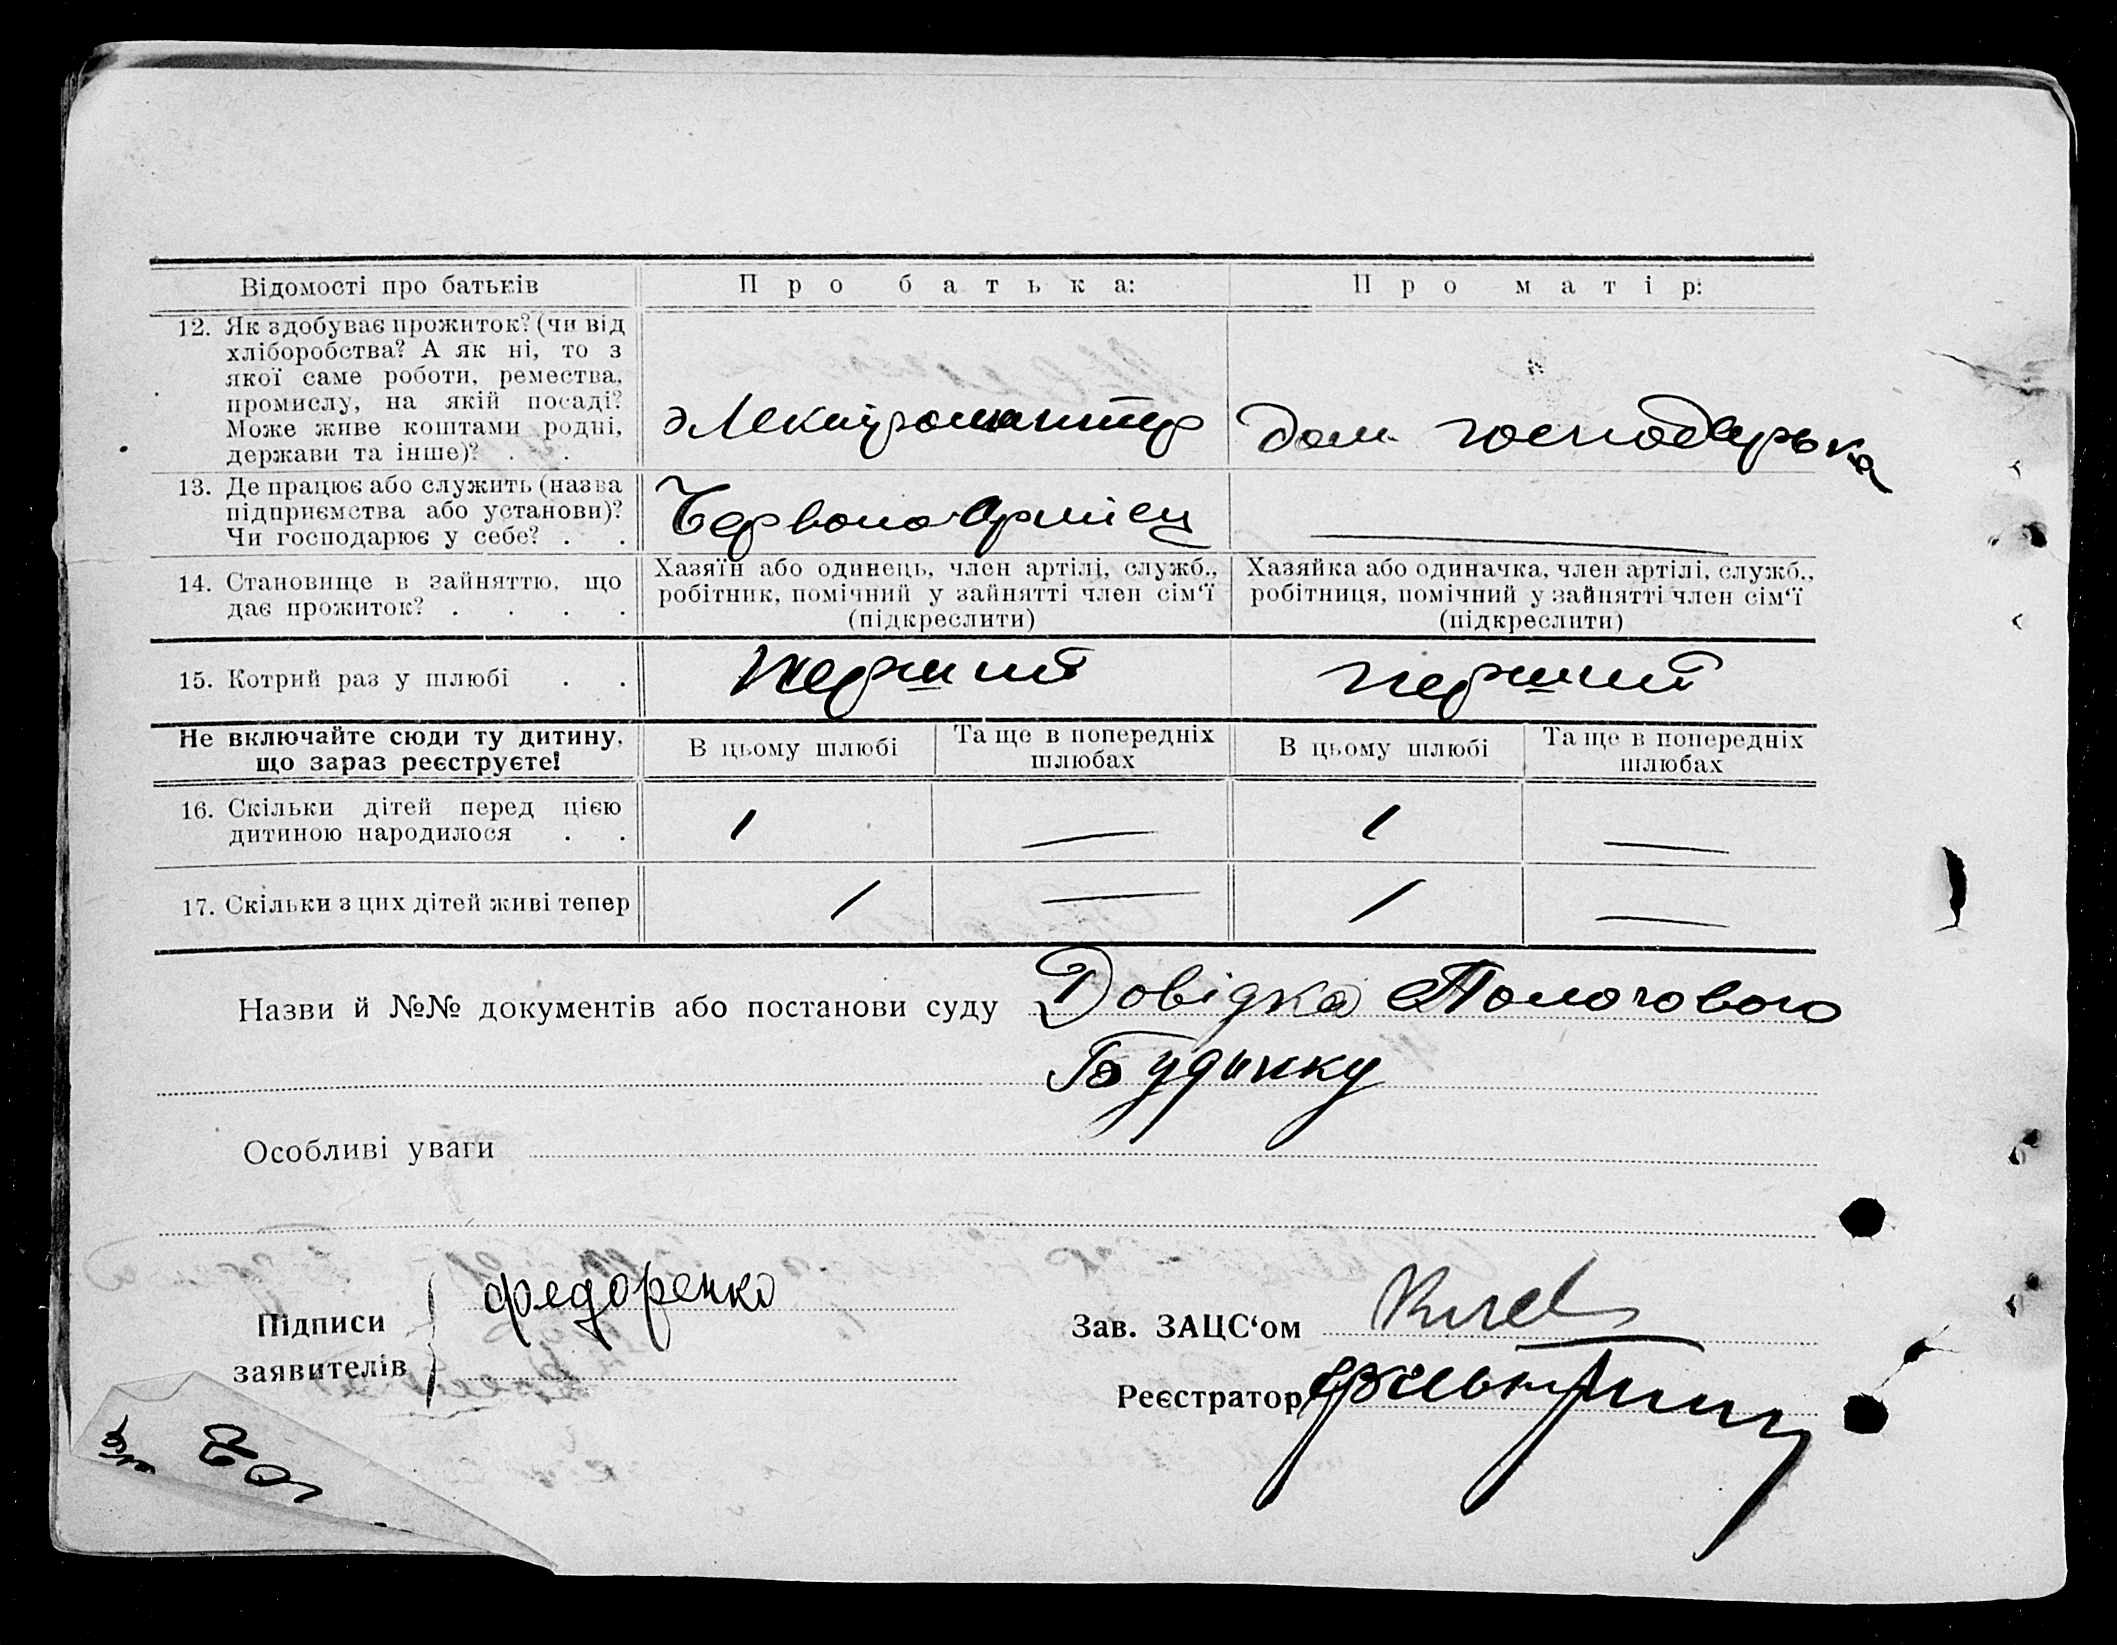 Відомості про батьків
Про батька:
Про матір:
12. Як здобуває прожиток? (чи від
хліборобства? А як ні, то з
якої саме роботи, ремества,
промислу, на якій посаді?
Може живе коштами родні,
держави та інше)? . .
электромонтер
дом. господарька
13. Де працює або служить (назва
підприємства або установи)?
Чи господарює у себе? . .
Червоноармієц
14. Становище в зайняттю, що
дає прожиток? . . . .
Хазяїн або одинець, член артілі, служб.,
робітник, помічний у зайнятті член сім‘ї
(підкреслити)
Хазяйка або одиначка, член артілі, служб.,
робітниця, помічний у зайнятті член сім‘ї
(підкреслити)
15. Котрий раз у шлюбі . .
перший
перший
Не включайте сюди ту дитину,
що зараз реєструєте!
В цьому шлюбі
Та ще в попередніх
шлюбах
В цьому шлюбі
Та ще в попередніх
шлюбах
16. Скільки дітей перед цією
дитиною народилося . .
1 — 1 —
17. Скільки з цих дітей живі тепер
1 — 1 —
Назви й №№ документів або постанови суду Довідка Пологового
Будинку
Особливі уваги
Підписи
заявителів
Федоренко
Зав. ЗАЦС‘ом
Реєстратор